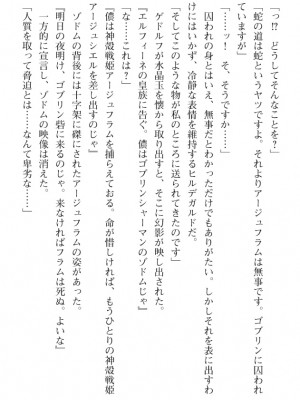 「っ!?　どうしてそんなことを？」
「蛇の道は蛇というヤツですよ。それよりアージュフラムは無事です。ゴブリンに囚われ
ています」
「……ッ！　そ、そうですか……」
　囚われの身とはいえ、無事だとわかっただけでもありがたい。しかしそれを表に出すわ
けにはいかず、冷静な表情を維持するヒルデガルドだ。
「そしてこのような物が私のところに送られてきたのです」
　ゲドルフが水晶玉を懐から取り出すと、そこに幻影が映し出された。
『エルフィーネの皇族に告ぐ。儂はゴブリンシャーマンのゾドムじゃ』
「な……これは？」
『儂は神殻戦姫アージュフラムを捕らえておる。命が惜しければ、もうひとりの神殻戦姫
アージュシエルを差し出すのじゃ』
　ゾドムの背後には十字架に磔にされたアージュフラムの姿があった。
『明日の夜明け、ゴブリン砦に来るのじゃ。来なければフラムは死ぬ。よいな』
　一方的に宣言し、ゾドムの映像は消えた。
「人質を取って脅迫とは……なんて卑劣な……」